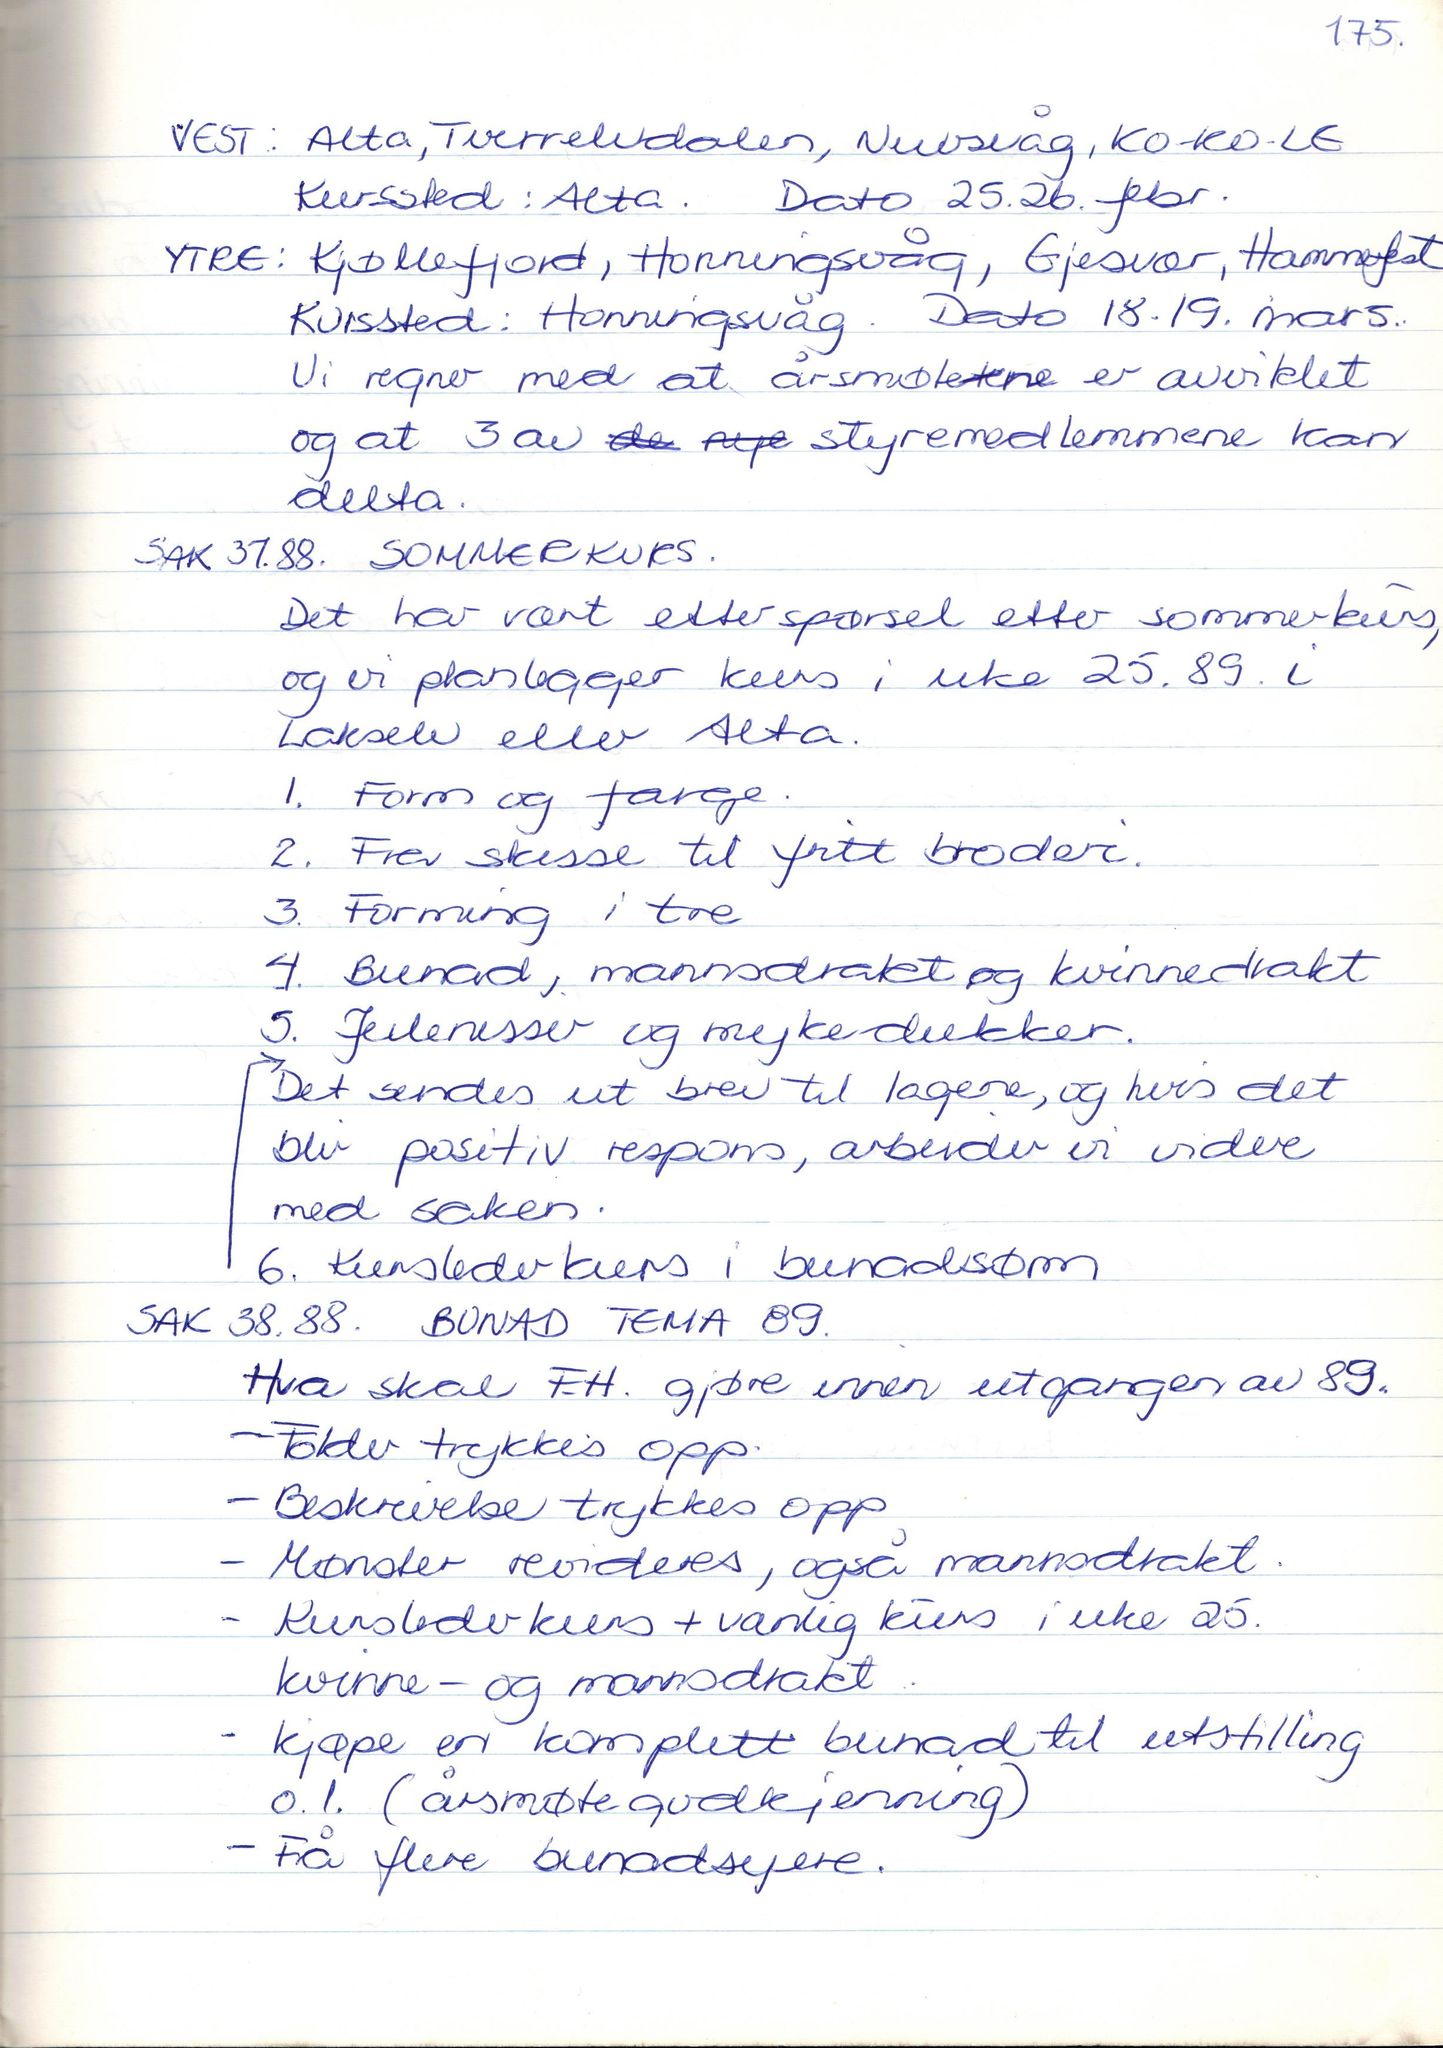 175.
VEST: Alta, Tverrelvdalen, Nuvsvåg, KO-KO-LE
Kurssted: Alta. Dato 25.26. febr.
YTRE: Kjøllefjord, Honningsvåg, Gjesvær, Hammerfest
Kurssted: Honningsvåg. Dato 18.-19. mars.
Vi regner med at årsmøtene er avviklet
og at 3 av de nye styremedlemmene kan
delta.
SAK 37.88. SOMMERKURS.
Det har vært etterspørsel etter sommerkurs,
og vi planlegger kurs i uke 25.89. i
Lakselv eller Alta.
1. Form og farge.
2. Frev skisse til fritt broderi.
3. Forming i tre
4. Bunad, mannsdrakt og kvinnedrakt
5. Julenisser og myke dukker.
Det sendes ut brev til lagene, og hvis det
blir positiv respons, arbeider vi videre
med saken.
6. Kurslederkurs i bunadsøm
SAK 38.88. BUNAD TEMA 89.
Hva skal F.H. gjøre innen utgangen av 89.
- Folder trykkes opp.
- Beskrivelse trykkes opp
- Mønster revideres, også mannsdrakt.
- Kurslederkurs + vanlig kurs i uke 25.
kvinne- og mannsdrakt.
- kjøpe en komplett bunad til utstilling
o.l. (årsmøtegodkjenning)
- Få flere bunadsyere.